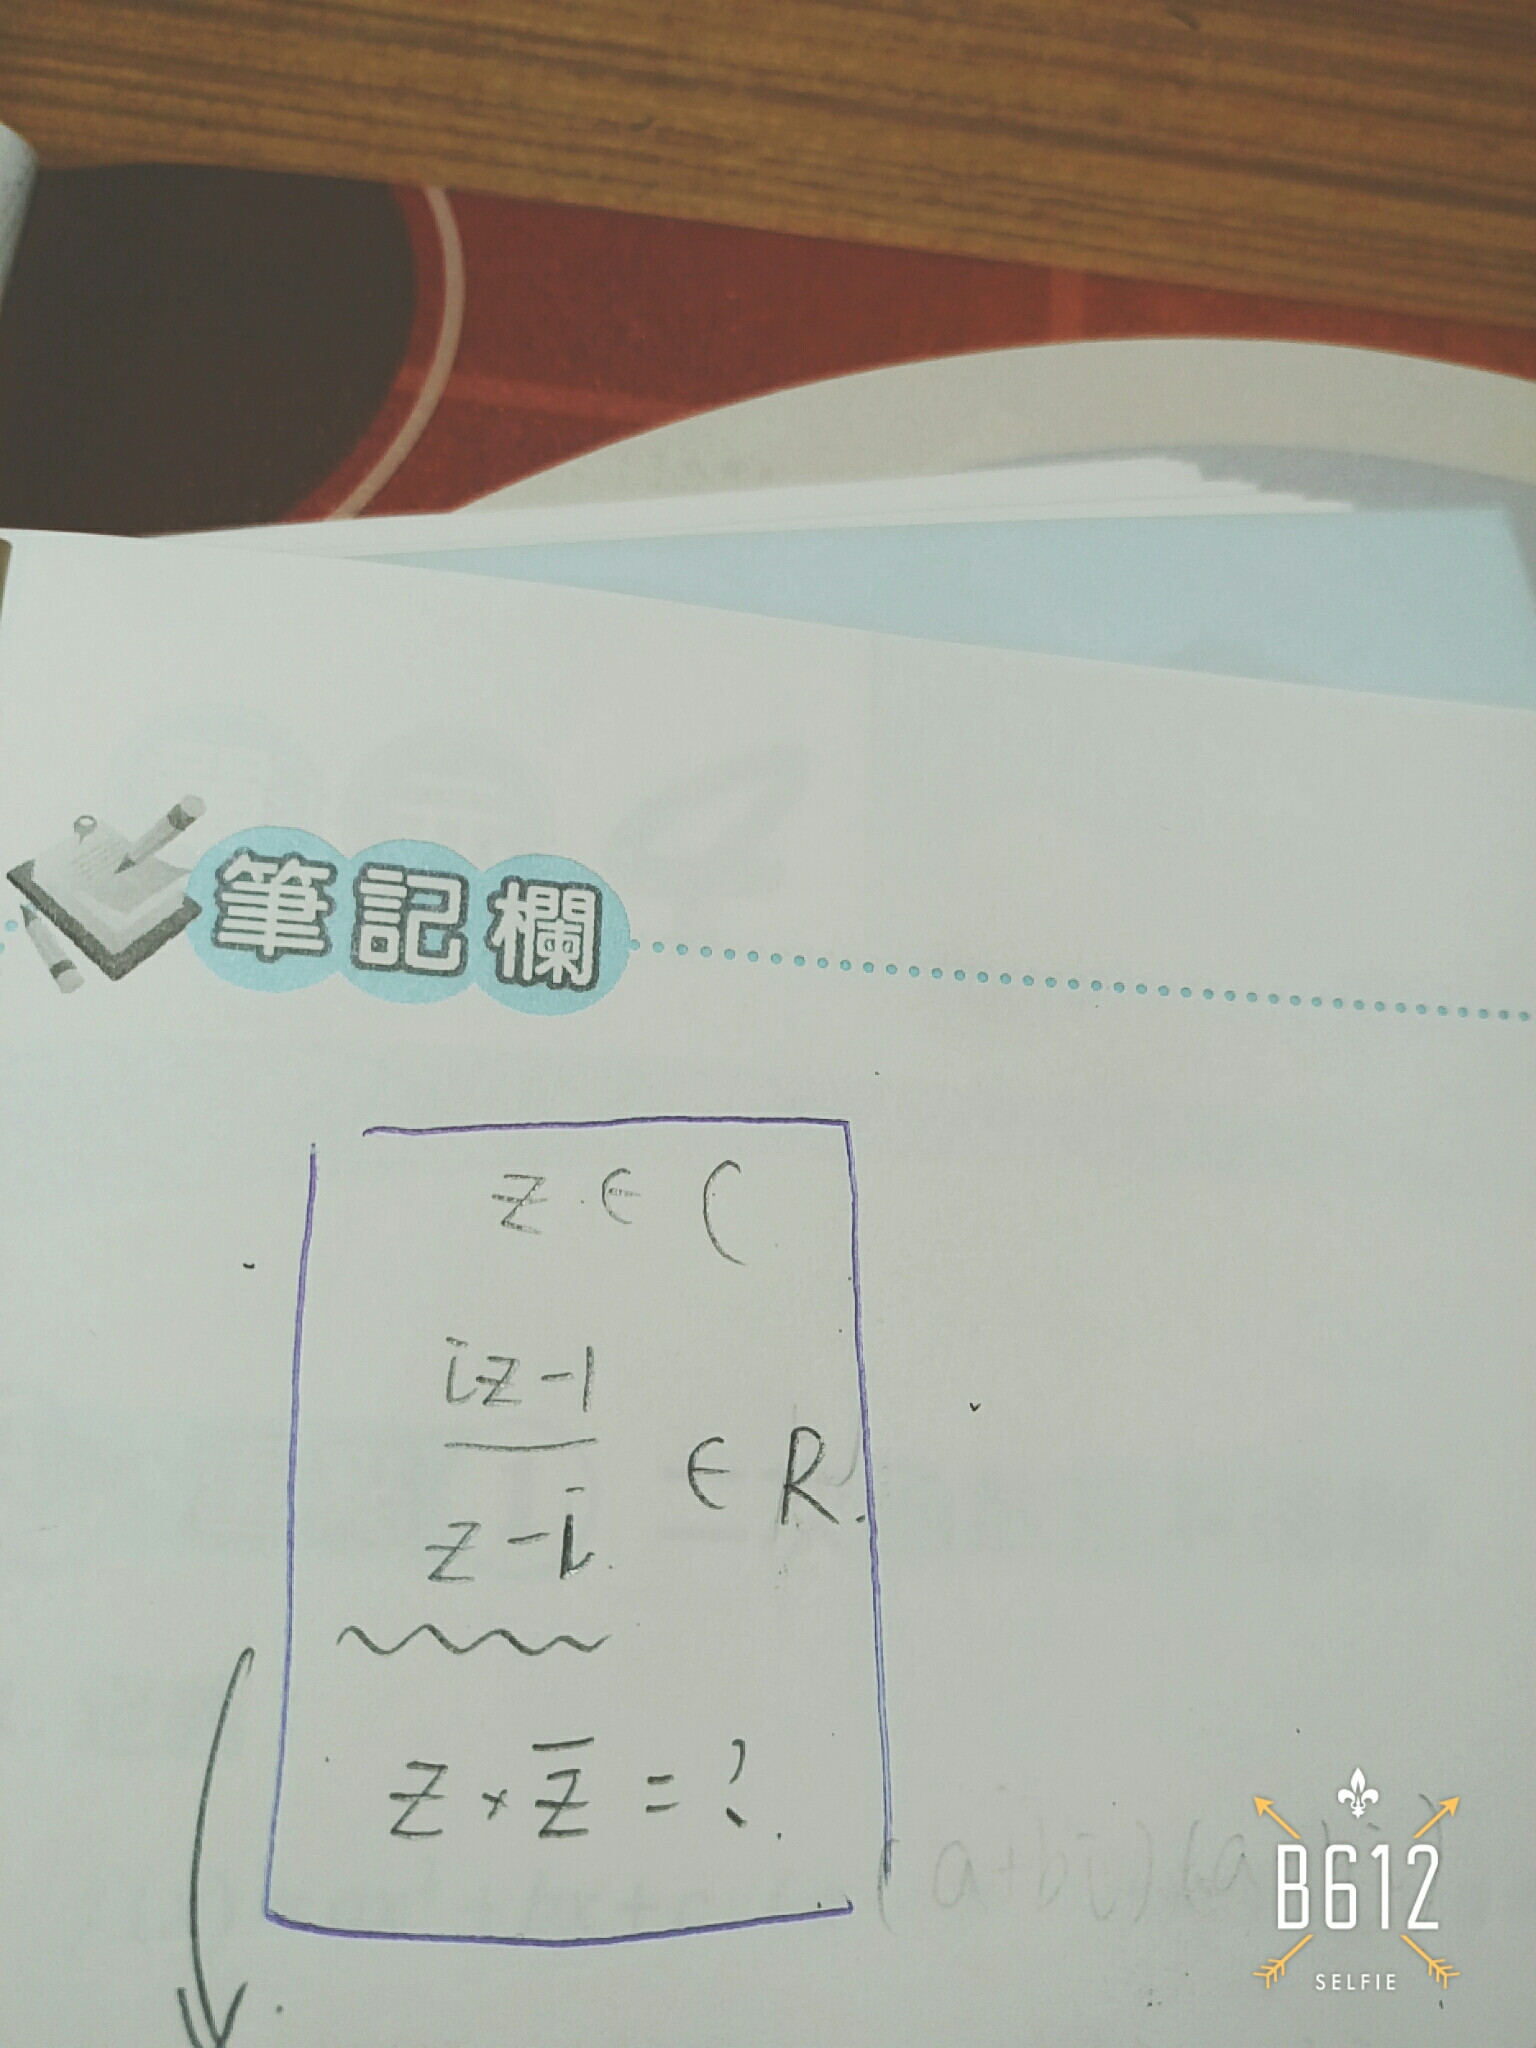 筆記欄
z ∈ C
iz-1
z-i
∈ R.
z × z̅ = ?
(a+bi)(a
B612
SELFIE